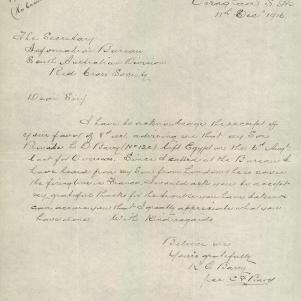 11th Dec. 1916
The Secretary
Information Bureau
South Australian Division
Red Cross Society
Dear Sir,
I have to acknowledge the receipt of
your favor of 8th inst, advising me that my Son
Private L D Barry left Egypt on the 6th Augt
last for Overseas. Since I called at the Bureau I
have heard from my Son from London &
France. I would ask you to accept
my grateful thanks for the trouble you have taken
can assure you that I greatly appreciate what you
have done. With Kind regards
Believe me
Yours gratefully
Barry